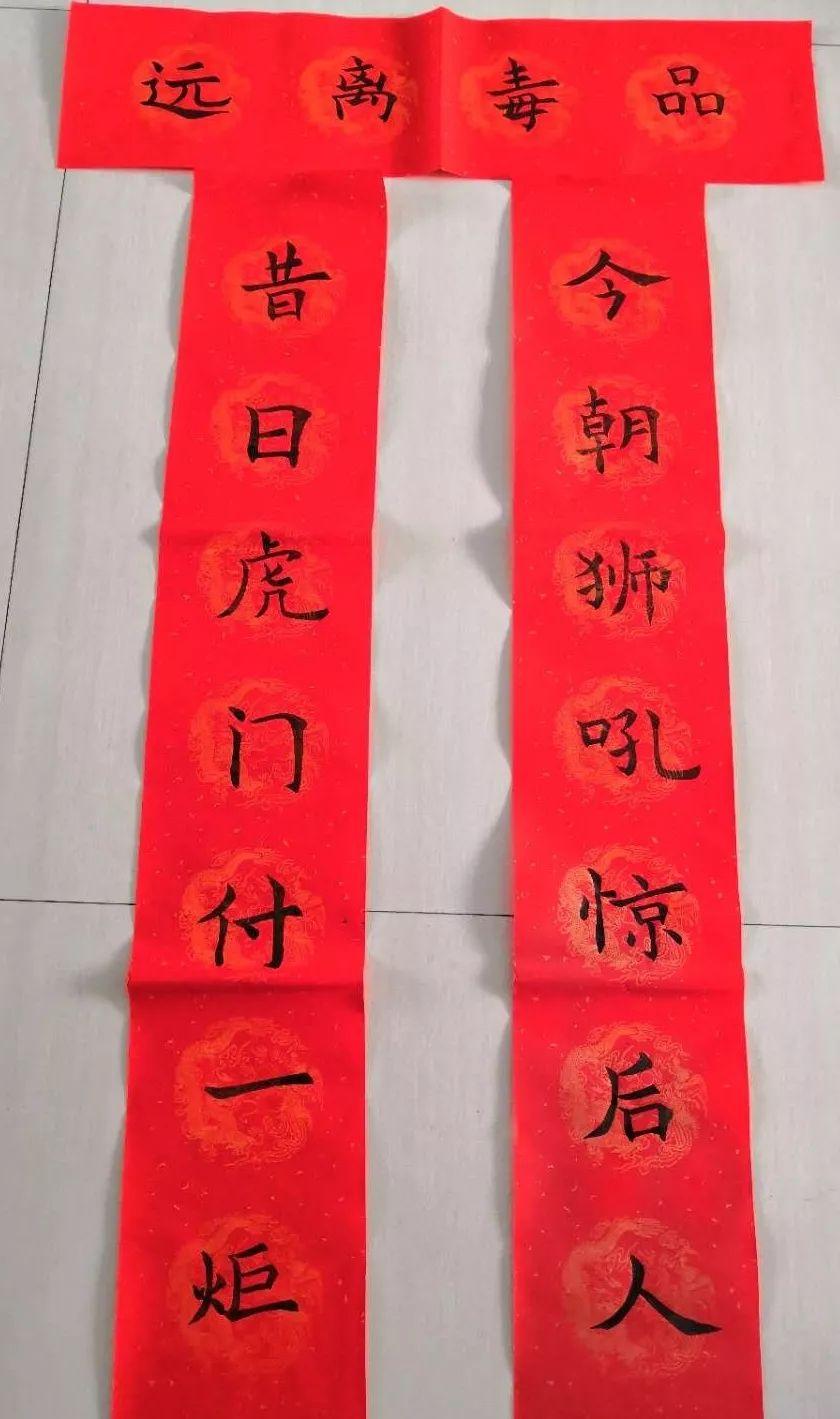 远离毒品
昔日虎门付一炬
今朝狮吼惊后人